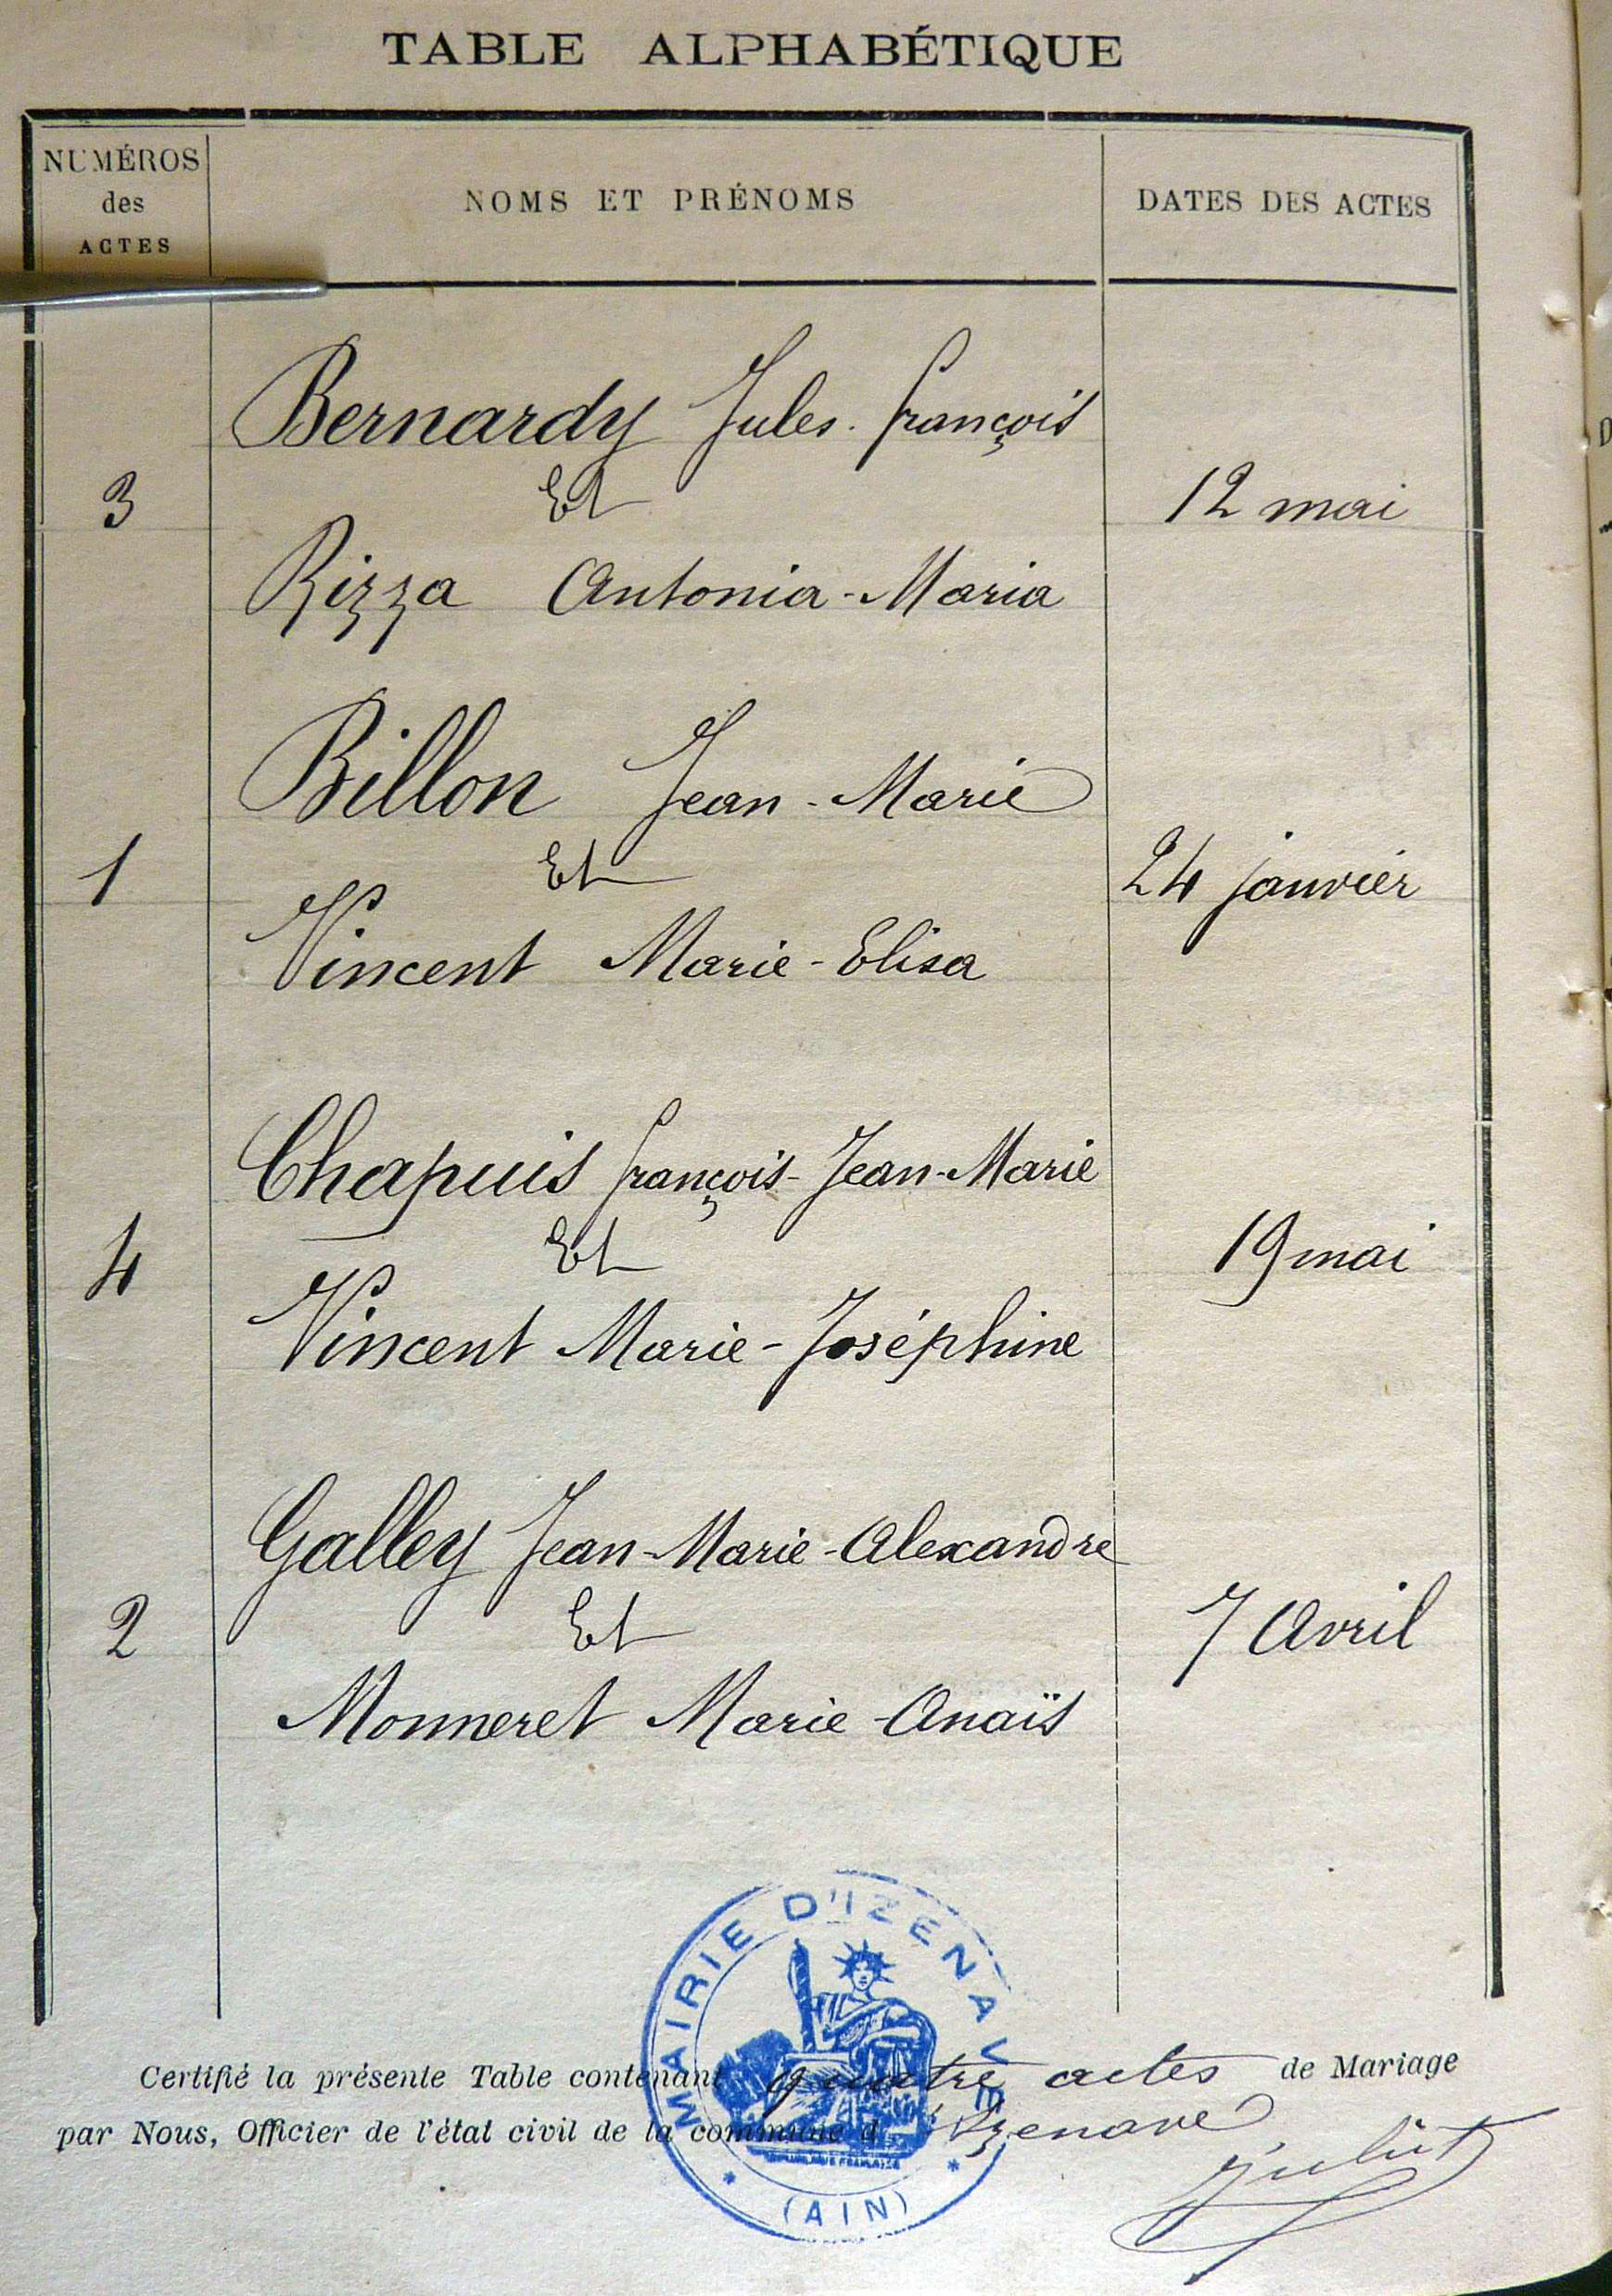 TABLE ALPHABÉTIQUE
NUMÉROS
des
ACTES
NOMS ET PRÉNOMS
DATES DES ACTES
Bernardy Jules-François
3 Et 12 mai
Rizza Antonia-Maria
Billon Jean-Marie
1 Et 24 janvier
Vincent Marie-Elisa
Chapuis François-Jean-Marie
4 Et 19 mai
Vincent Marie-Joséphine
Galley Jean-Marie-Alexandre
2 Et 7 Avril
Monneret Marie-Anaïs
Certifié la présente Table contenant quatre actes de Mariage
par Nous, Officier de l'état civil de la commune d'Izenave
MAIRIE D'IZENAVE
RÉPUBLIQUE FRANÇAISE
* (AIN) *